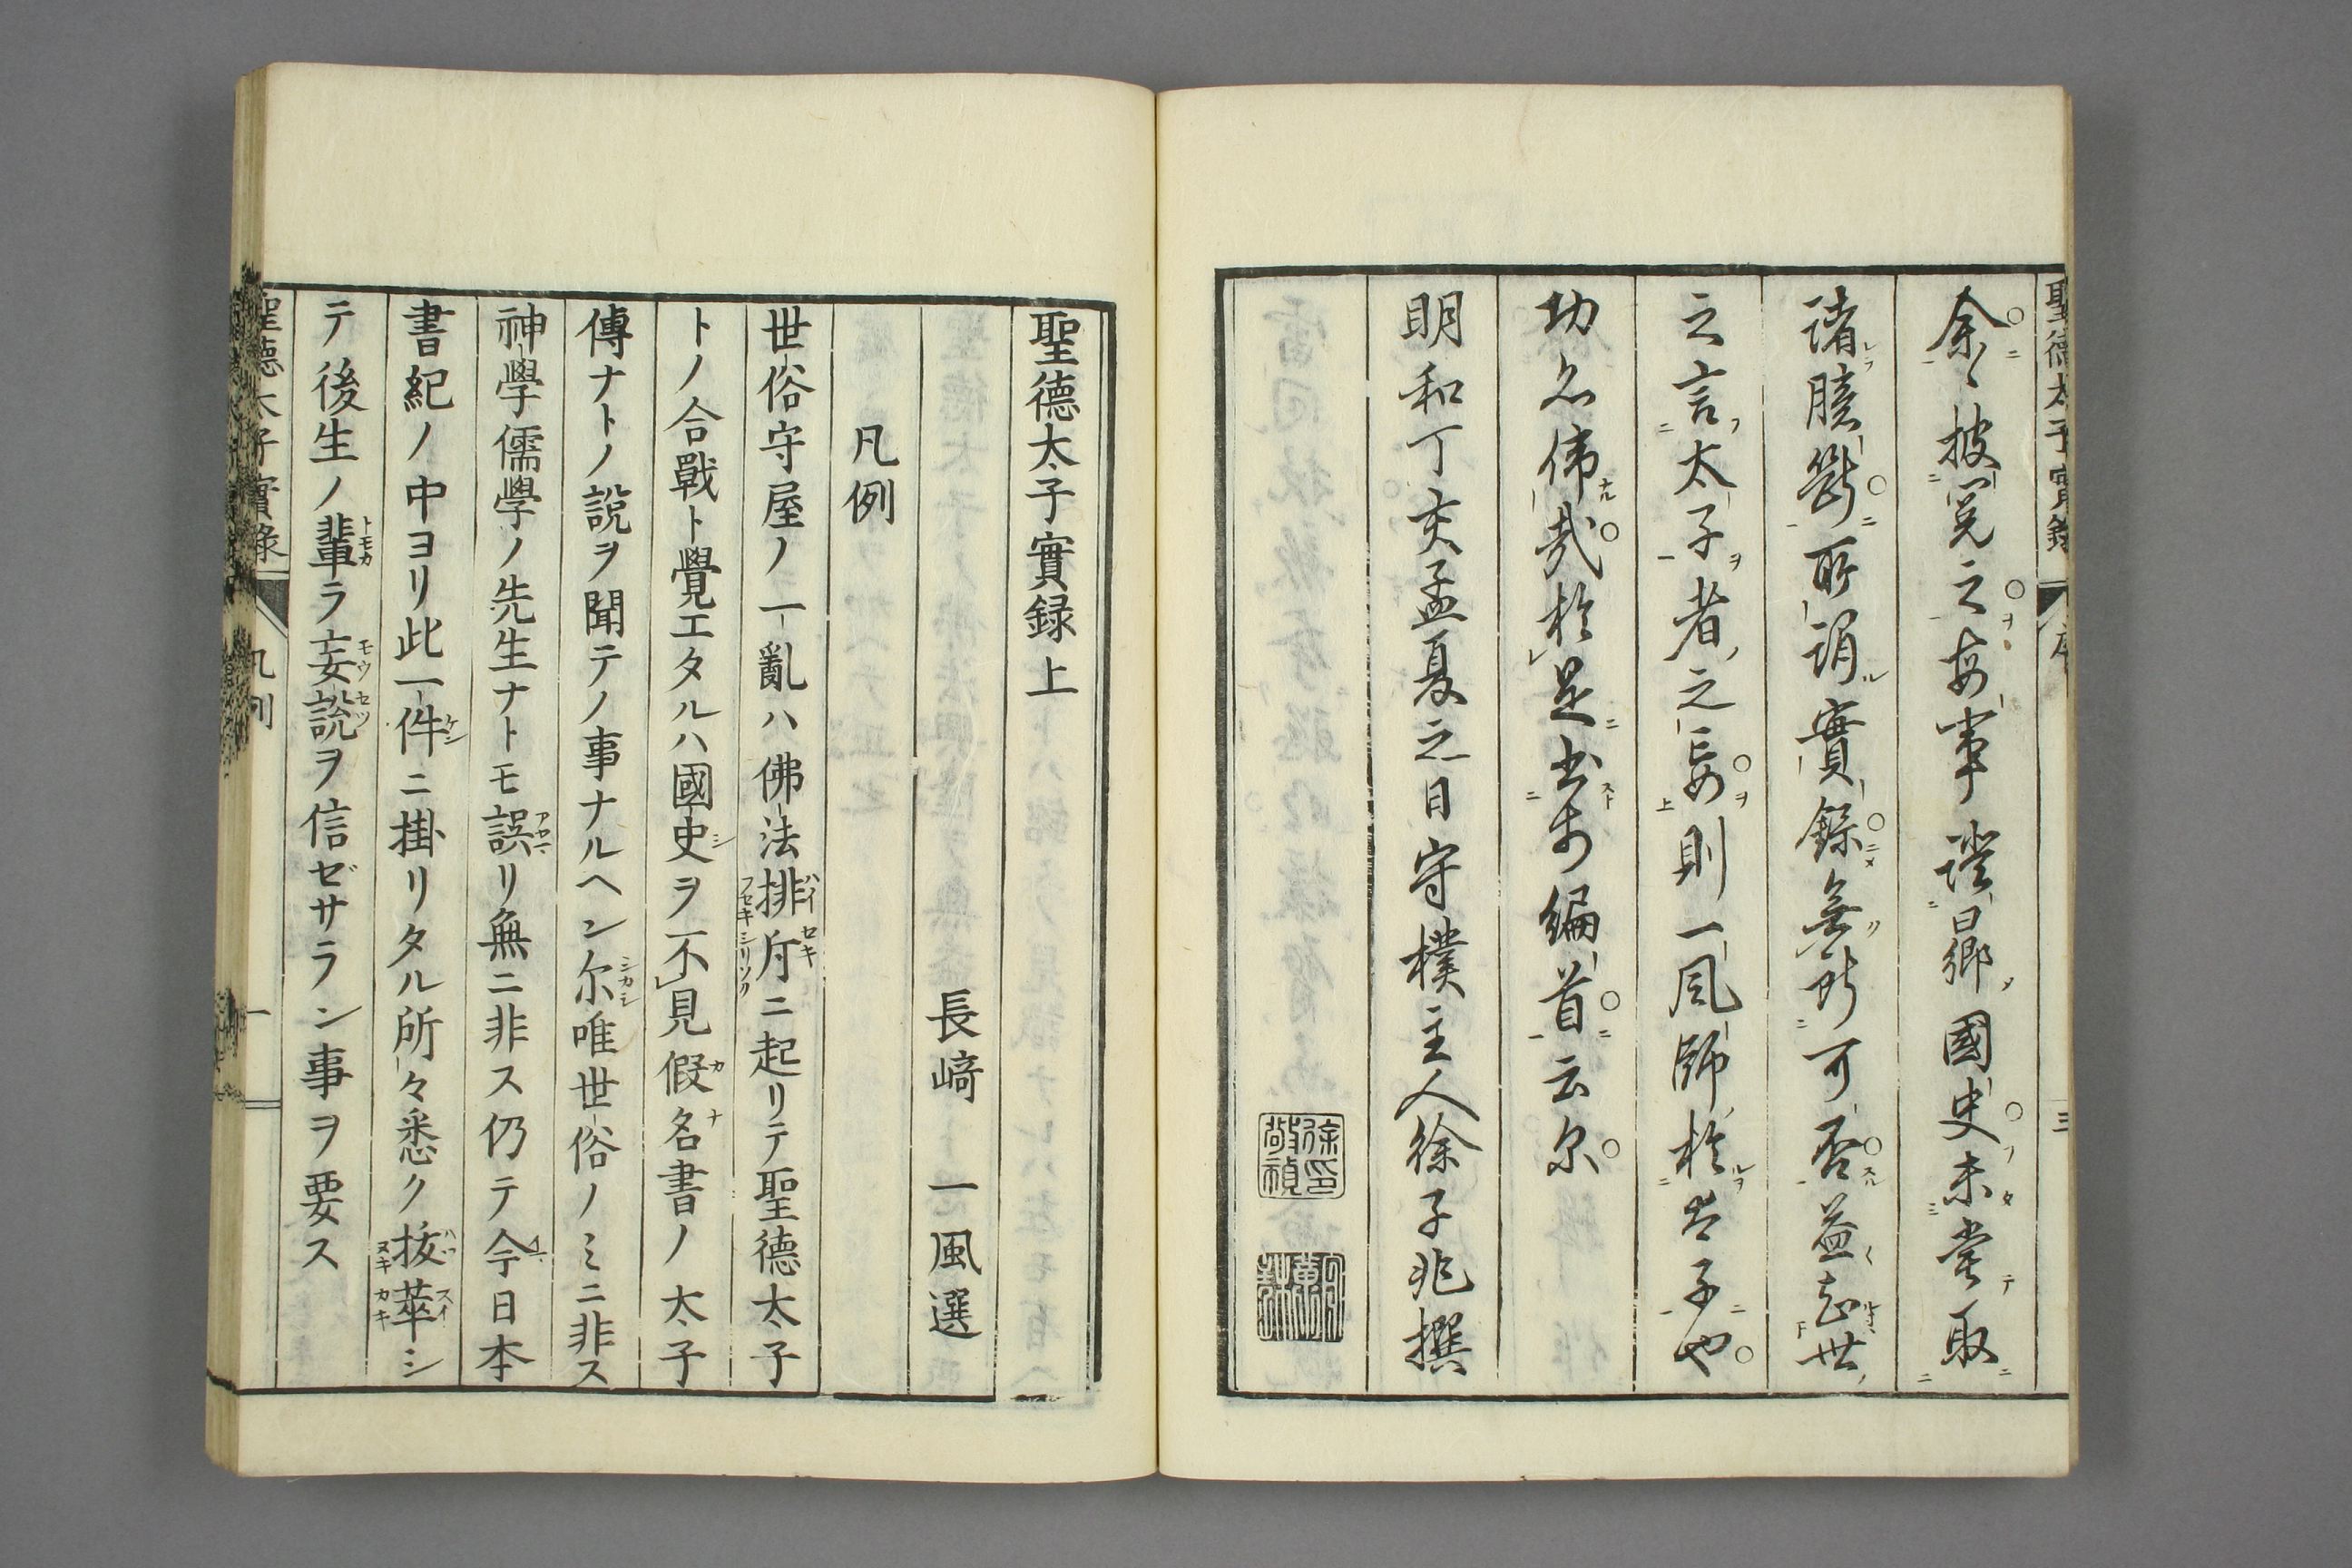 聖徳太子實録 序 三
余〻披閲之每事證曰鄉國史未嘗取
諸臆斷所謂實錄無所可否益知世
之言太子者之妄則一風師於太子也
功名偉哉於是書于編首云尔
明和丁亥孟夏之日守樸主人徐子兆撰
聖德太子實録上
長﨑 一風選
凡例
世俗守屋ノ一亂ハ佛法排斥ニ起リテ聖德太子
トノ合戰ト覺エタルハ國史ヲ不見假名書ノ太子
傳ナトノ説ヲ聞テノ事ナルヘシ尔唯世俗ノミニ非ス
神學儒學ノ先生ナトモ誤リ無ニ非ス仍テ今日本
書紀ノ中ヨリ此一件ニ掛リタル所々悉ク抜萃シ
テ後生ノ輩ラ妄説ヲ信ゼサラン事ヲ要ス
聖德太子實錄 凡例 一